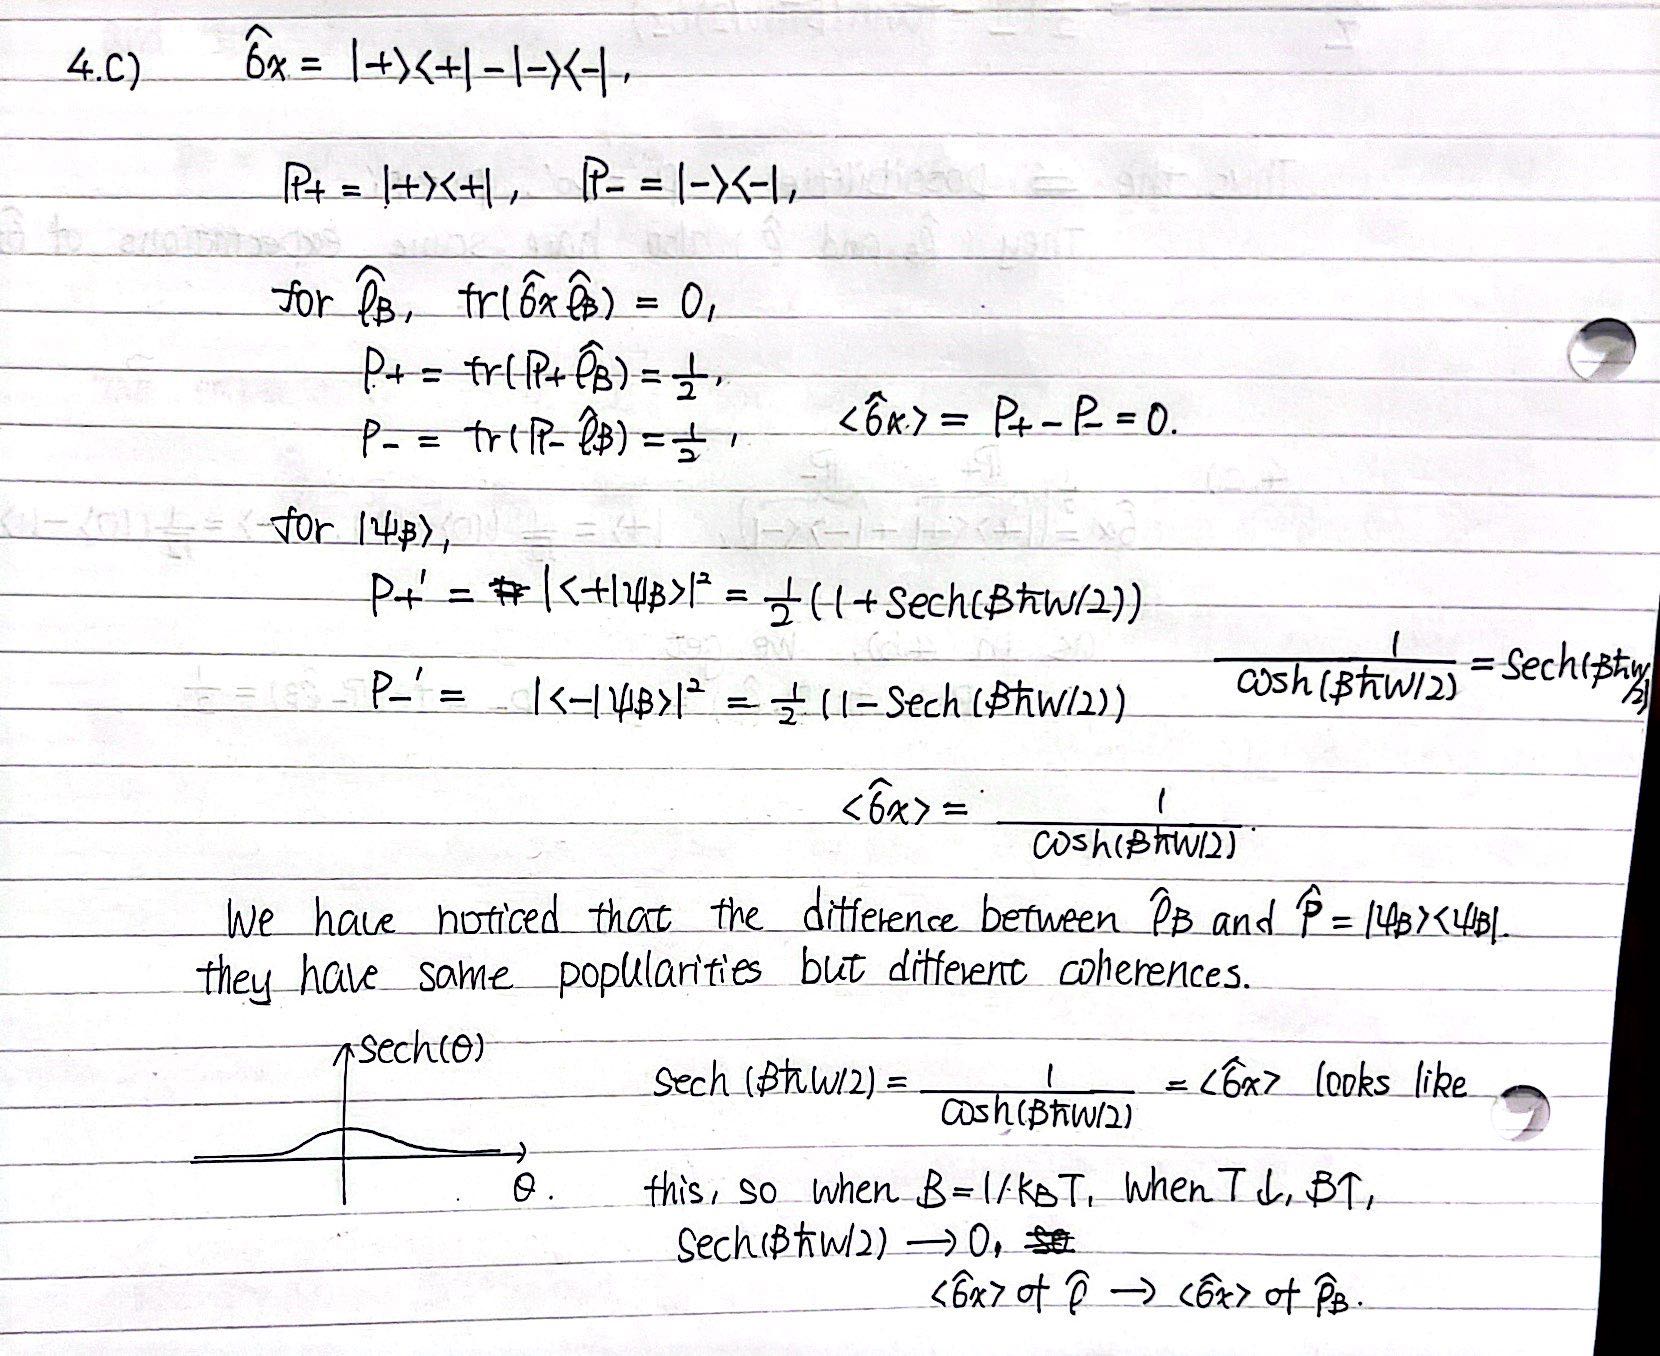 4.c) σ̂x = |+><+| - |-><-|,
ℙ+ = |+><+|, ℙ- = |-><-|,
for ρ̂B, tr(σ̂x ρ̂B) = 0,
P+ = tr(ℙ+ ρ̂B) = 1/2,
P- = tr(ℙ- ρ̂B) = 1/2, <σ̂x> = P+ - P- = 0.
for |ψβ>,
P+' = |<+|ψβ>|² = 1/2 (1 + Sech(βħω/2))
P-' = |<-|ψβ>|² = 1/2 (1 - Sech(βħω/2)) 1/cosh(βħω/2) = Sech(βħω/2)
<σ̂x> = 1/cosh(βħω/2).
We have noticed that the difference between ρ̂B and ρ̂ = |ψβ><ψβ|.
they have same popularities but different coherences.
sech(θ)
θ.
Sech (βħω/2) = 1/cosh(βħω/2) = <σ̂x> looks like
this, so when β = 1/kBT, when T↓, β↑,
Sech(βħω/2) → 0,
<σ̂x> of ρ̂ → <σ̂x> of ρ̂B.